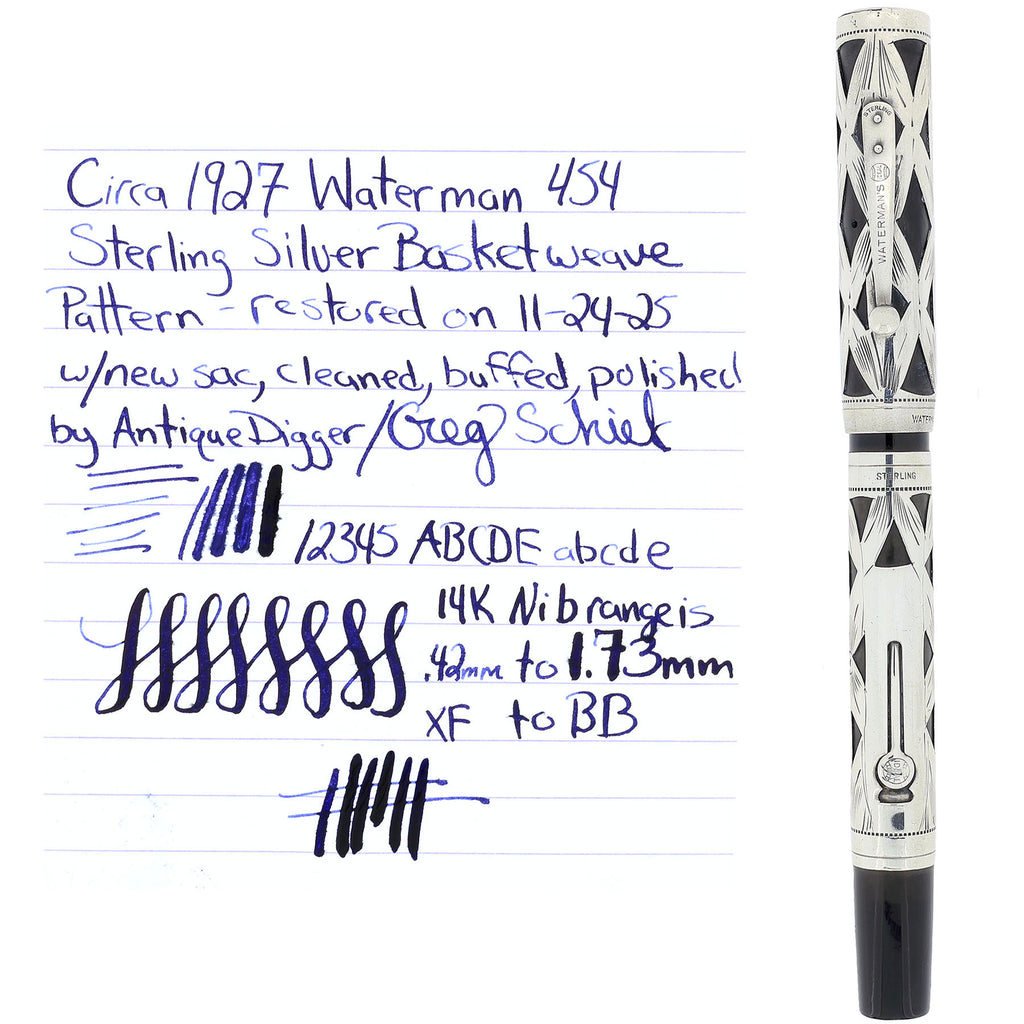 Circa 1927 Waterman 454
Sterling Silver Basketweave
Pattern - restored on 11-24-25
w/new sac, cleaned, buffed, polished
by AntiqueDigger/Greg
12345 ABCDE abcde
14K Nib range is
.42mm to 1.73mm
XF to BB
STERLING
WATERMAN'S
WATERM
STERLING